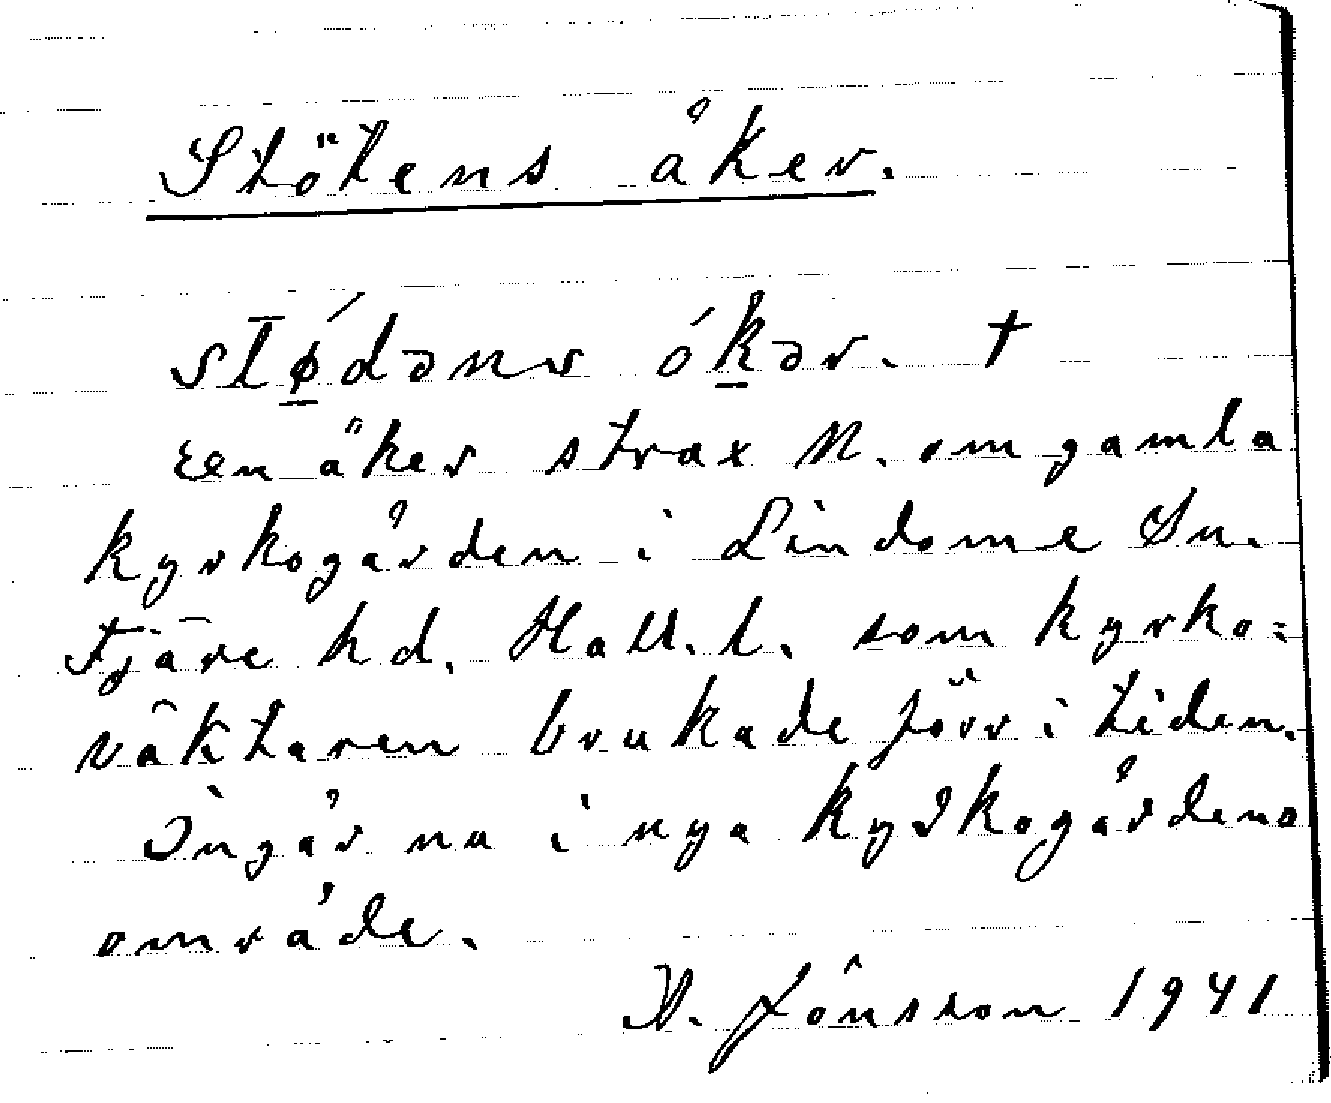 Stötens åker.
stǿdəns ókər. †
en åker strax N. om gamla
kyrkogården i Lindome Sn.
Fjäre hd. Hall. l. som kyrko=
väktaren brukade förr i tiden.
Ingår nu i nya kyrkogårdens
område.
N. Jönsson 1941